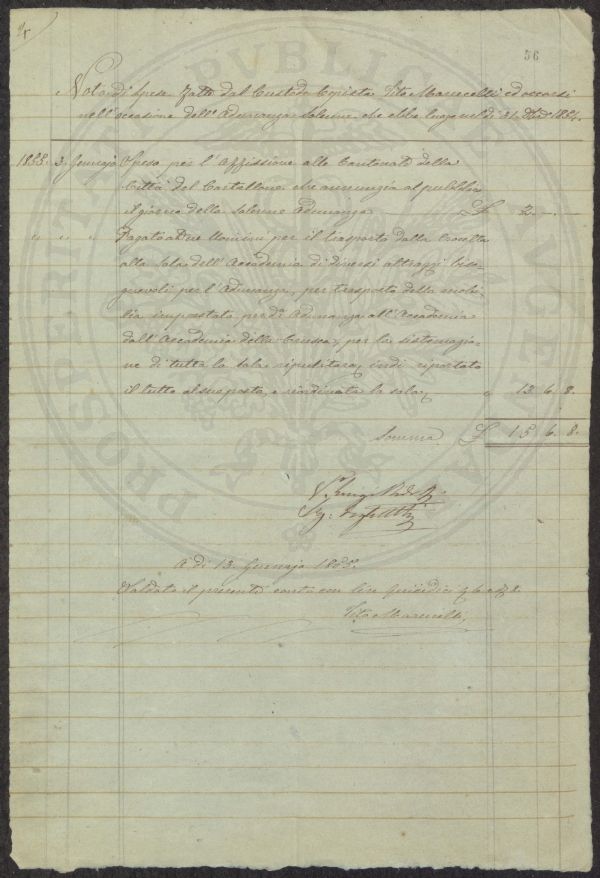 56
Nota di Spese fatte dal Custode Copista Tito Marucelli ed occorsi
nell'occasione dell'Adunanza Solenne che ebbe luogo nel dì 31 1854.
1855. 3. Gennajo Speso per l'affissione alle Cantonate della
Città del Cartellone che annunzia al pubblico
il giorno della Solenne Adunanza £ 2. -. -.
" " " Pagato a Due Uomini per il trasporto dalla
alla Sala dell'Accademia di diversi attrezzi biso-
gnevoli per l'Adunanza, per trasporto della mobi-
lia imprestata per da. Adunanza all'Accademia
dall'Accademia della Crusca, per la sistemazio-
ne di tutta la sala, ripulitura, indi riportato
il tutto al suo posto, e riordinata la sala " 13. 6. 8.
Somma £ 15. 6. 8.
A dì 13. Gennajo 1855.
Saldato il presente conto con lire quindici
Tito Marucelli
PROSPERITATI PVBLICAE AVGENDAE